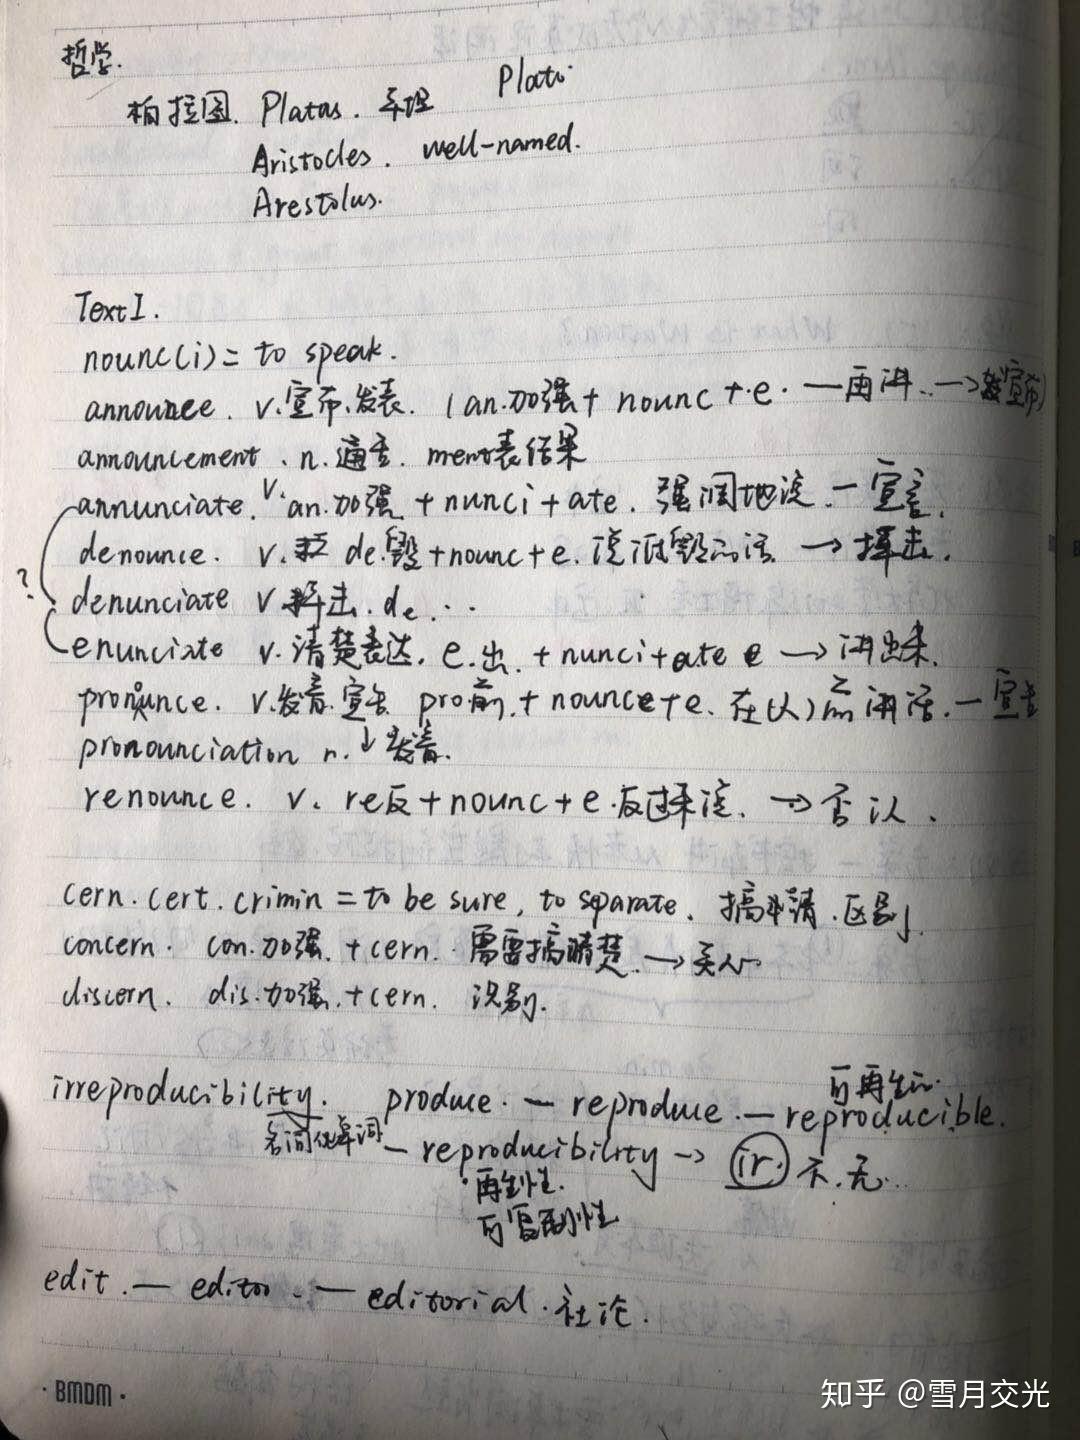 哲学.
柏拉图. Platas. Plato.
Aristocles. well-named.
Arestolus.
Text I.
nounc(i) = to speak.
announce. v.宣布.发表. (an.加强+ nounc + e. 一再讲. →宣布)
announcement. n. 通告. ment表结果
annunciate. v. an.加强 + nunci + ate. 强调地说. — 宣言.
denounce. v. de.毁+nounc+e. 说诋毁的话 → 抨击.
? denunciate v 抨击. de...
enunciate v. 清楚表达. e.出. + nunci+ate e → 讲出来.
pronounce. v.发音.宣告 pro前.+ nounce+e. 在(人)前讲话. — 宣告
pronounciation n. ↓发音.
renounce. v. re反+nounc+e.反过来说. → 否认.
cern. cert. crimin = to be sure, to separate. 搞清. 区别.
concern. con.加强. +cern. 需要搞清楚. → 关心
discern. dis.加强.+cern. 识别.
可再生的.
irreproducibility. produce. — reproduce. — reproducible.
— reproducibility → ir. 不.无...
再生性.
可复制性
edit. — editor. — editorial. 社论.
· BMDM ·
知乎 @雪月交光